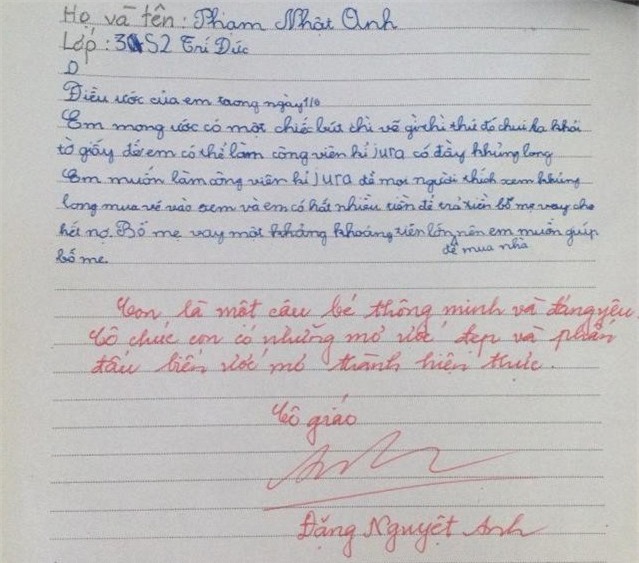 Họ và tên: Phạm Nhật Anh
Lớp: 3 S2 Trí Đức
Đ
Điều ước của em trong ngày 1/6
Em mong ước có một chiếc bút chì vẽ gì thì thứ đó chui ra khỏi
tờ giấy để em có thể làm công viên kỉ jura có đầy khủng long
Em muốn làm công viên kỉ jura để mọi người thích xem khủng
long mua vé vào xem và em có rất nhiều tiền để trả tiền bố mẹ vay cho
hết nợ. Bố mẹ vay một khoảng tiền lớn để mua nhà nên em muốn giúp
bố mẹ.
Con là một cậu bé thông minh và đáng yêu.
Cô chúc con có những mơ ước đẹp và phấn
đấu biến ước mơ thành hiện thực.
Cô giáo
Anh
Đặng Nguyệt Anh